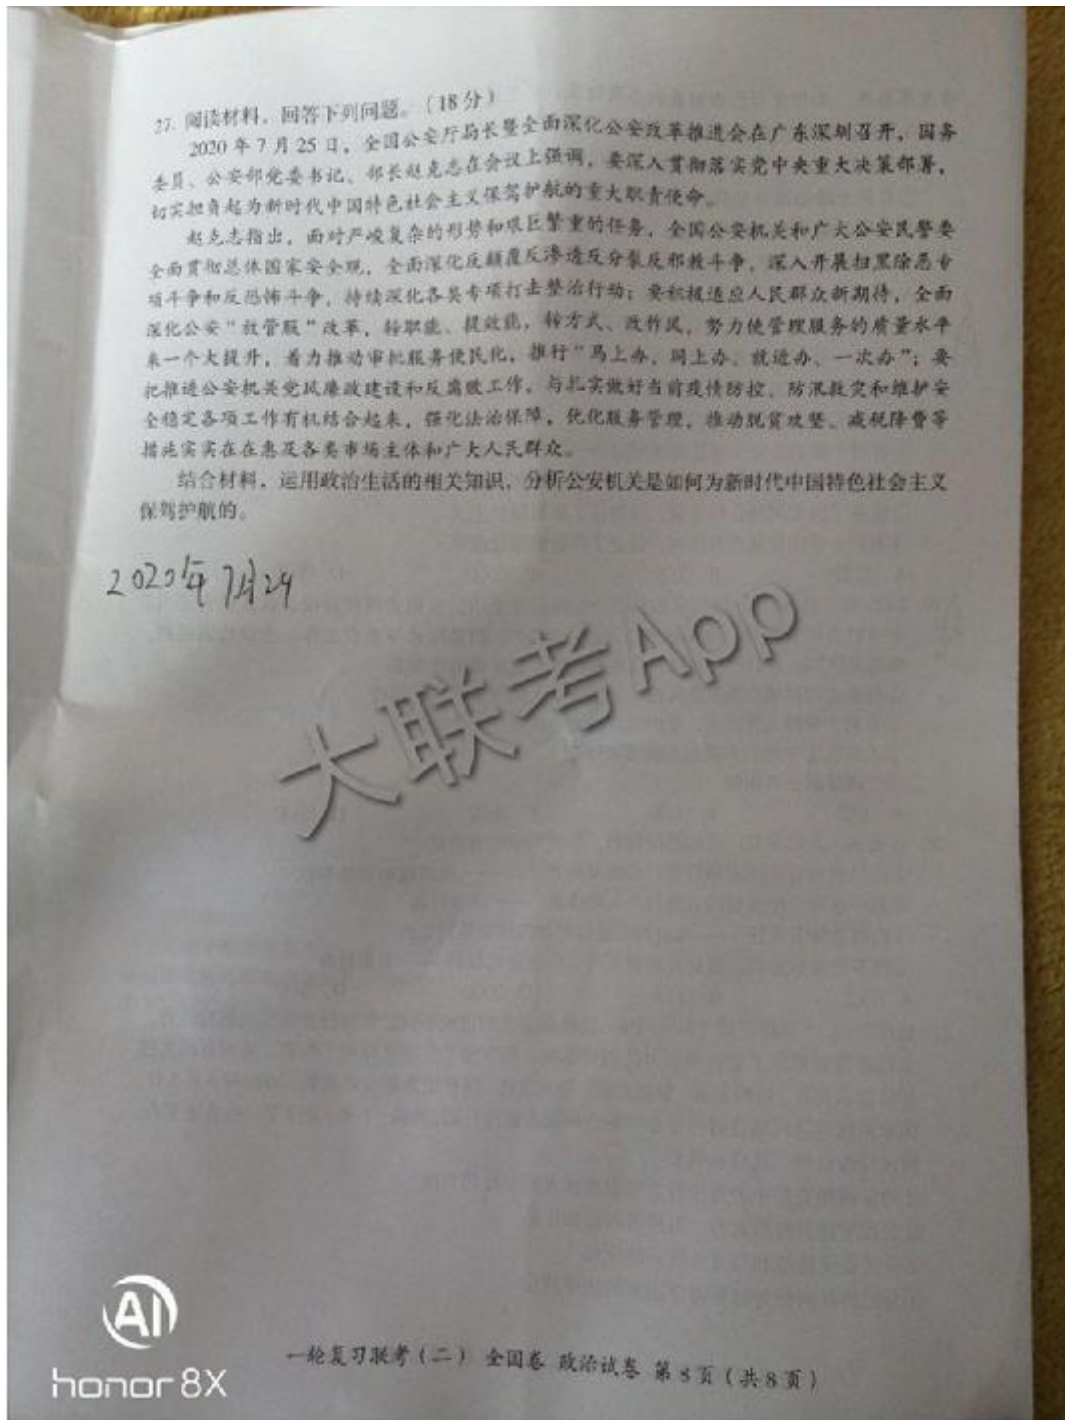 27. 阅读材料，回答下列问题。（18分）
2020年7月25日，全国公安厅局长暨全面深化公安改革推进会在广东深圳召开，国务
委员、公安部党委书记、部长赵克志在会议上强调，要深入贯彻落实党中央重大决策部署，
切实担负起为新时代中国特色社会主义保驾护航的重大职责使命。
赵克志指出，面对严峻复杂的形势和艰巨繁重的任务，全国公安机关和广大公安民警要
全面贯彻总体国家安全观，全面深化反颠覆反渗透反分裂反邪教斗争，深入开展扫黑除恶专
项斗争和反恐怖斗争，持续深化各类专项打击整治行动；要积极适应人民群众新期待，全面
深化公安“放管服”改革，转职能、提效能，转方式、改作风，努力使管理服务的质量水平
来一个大提升，着力推动审批服务便民化，推行“马上办、网上办、就近办、一次办”；要
把推进公安机关党风廉政建设和反腐败工作，与扎实做好当前疫情防控、防汛救灾和维护安
全稳定各项工作有机结合起来，强化法治保障，优化服务管理，推动脱贫攻坚、减税降费等
措施实实在在惠及各类市场主体和广大人民群众。
结合材料，运用政治生活的相关知识，分析公安机关是如何为新时代中国特色社会主义
保驾护航的。
2020年7月24
大联考App
AI
honor 8X
一轮复习联考（二） 全国卷 政治试卷 第8页（共8页）